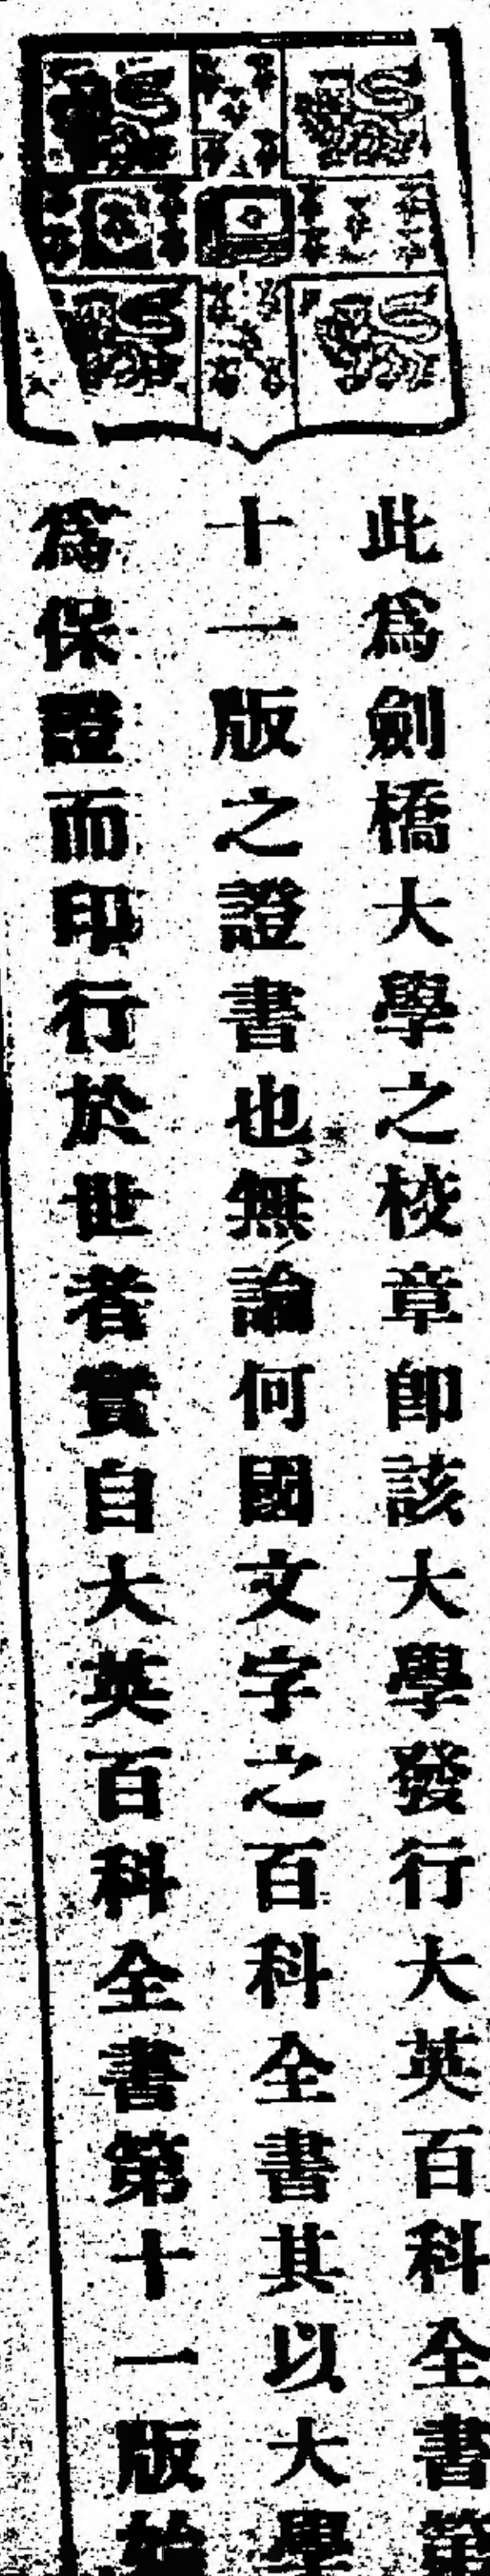 此爲劍橋大學之校章卽該大學發行大英百科全書第
十一版之證書也無論何國文字之百科全書其以大學
爲保證而印行於世者實自大英百科全書第十一版始